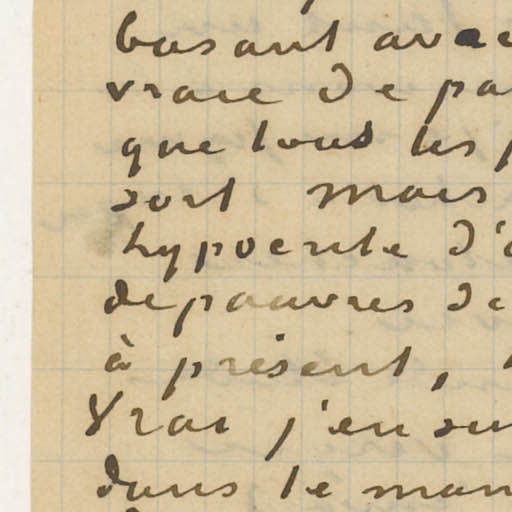 basant avec
vraie de pa
que tous les p
sort mais
hypocrite d'a
de pauvres de
à présent,
Vrai j'en su
dans le man